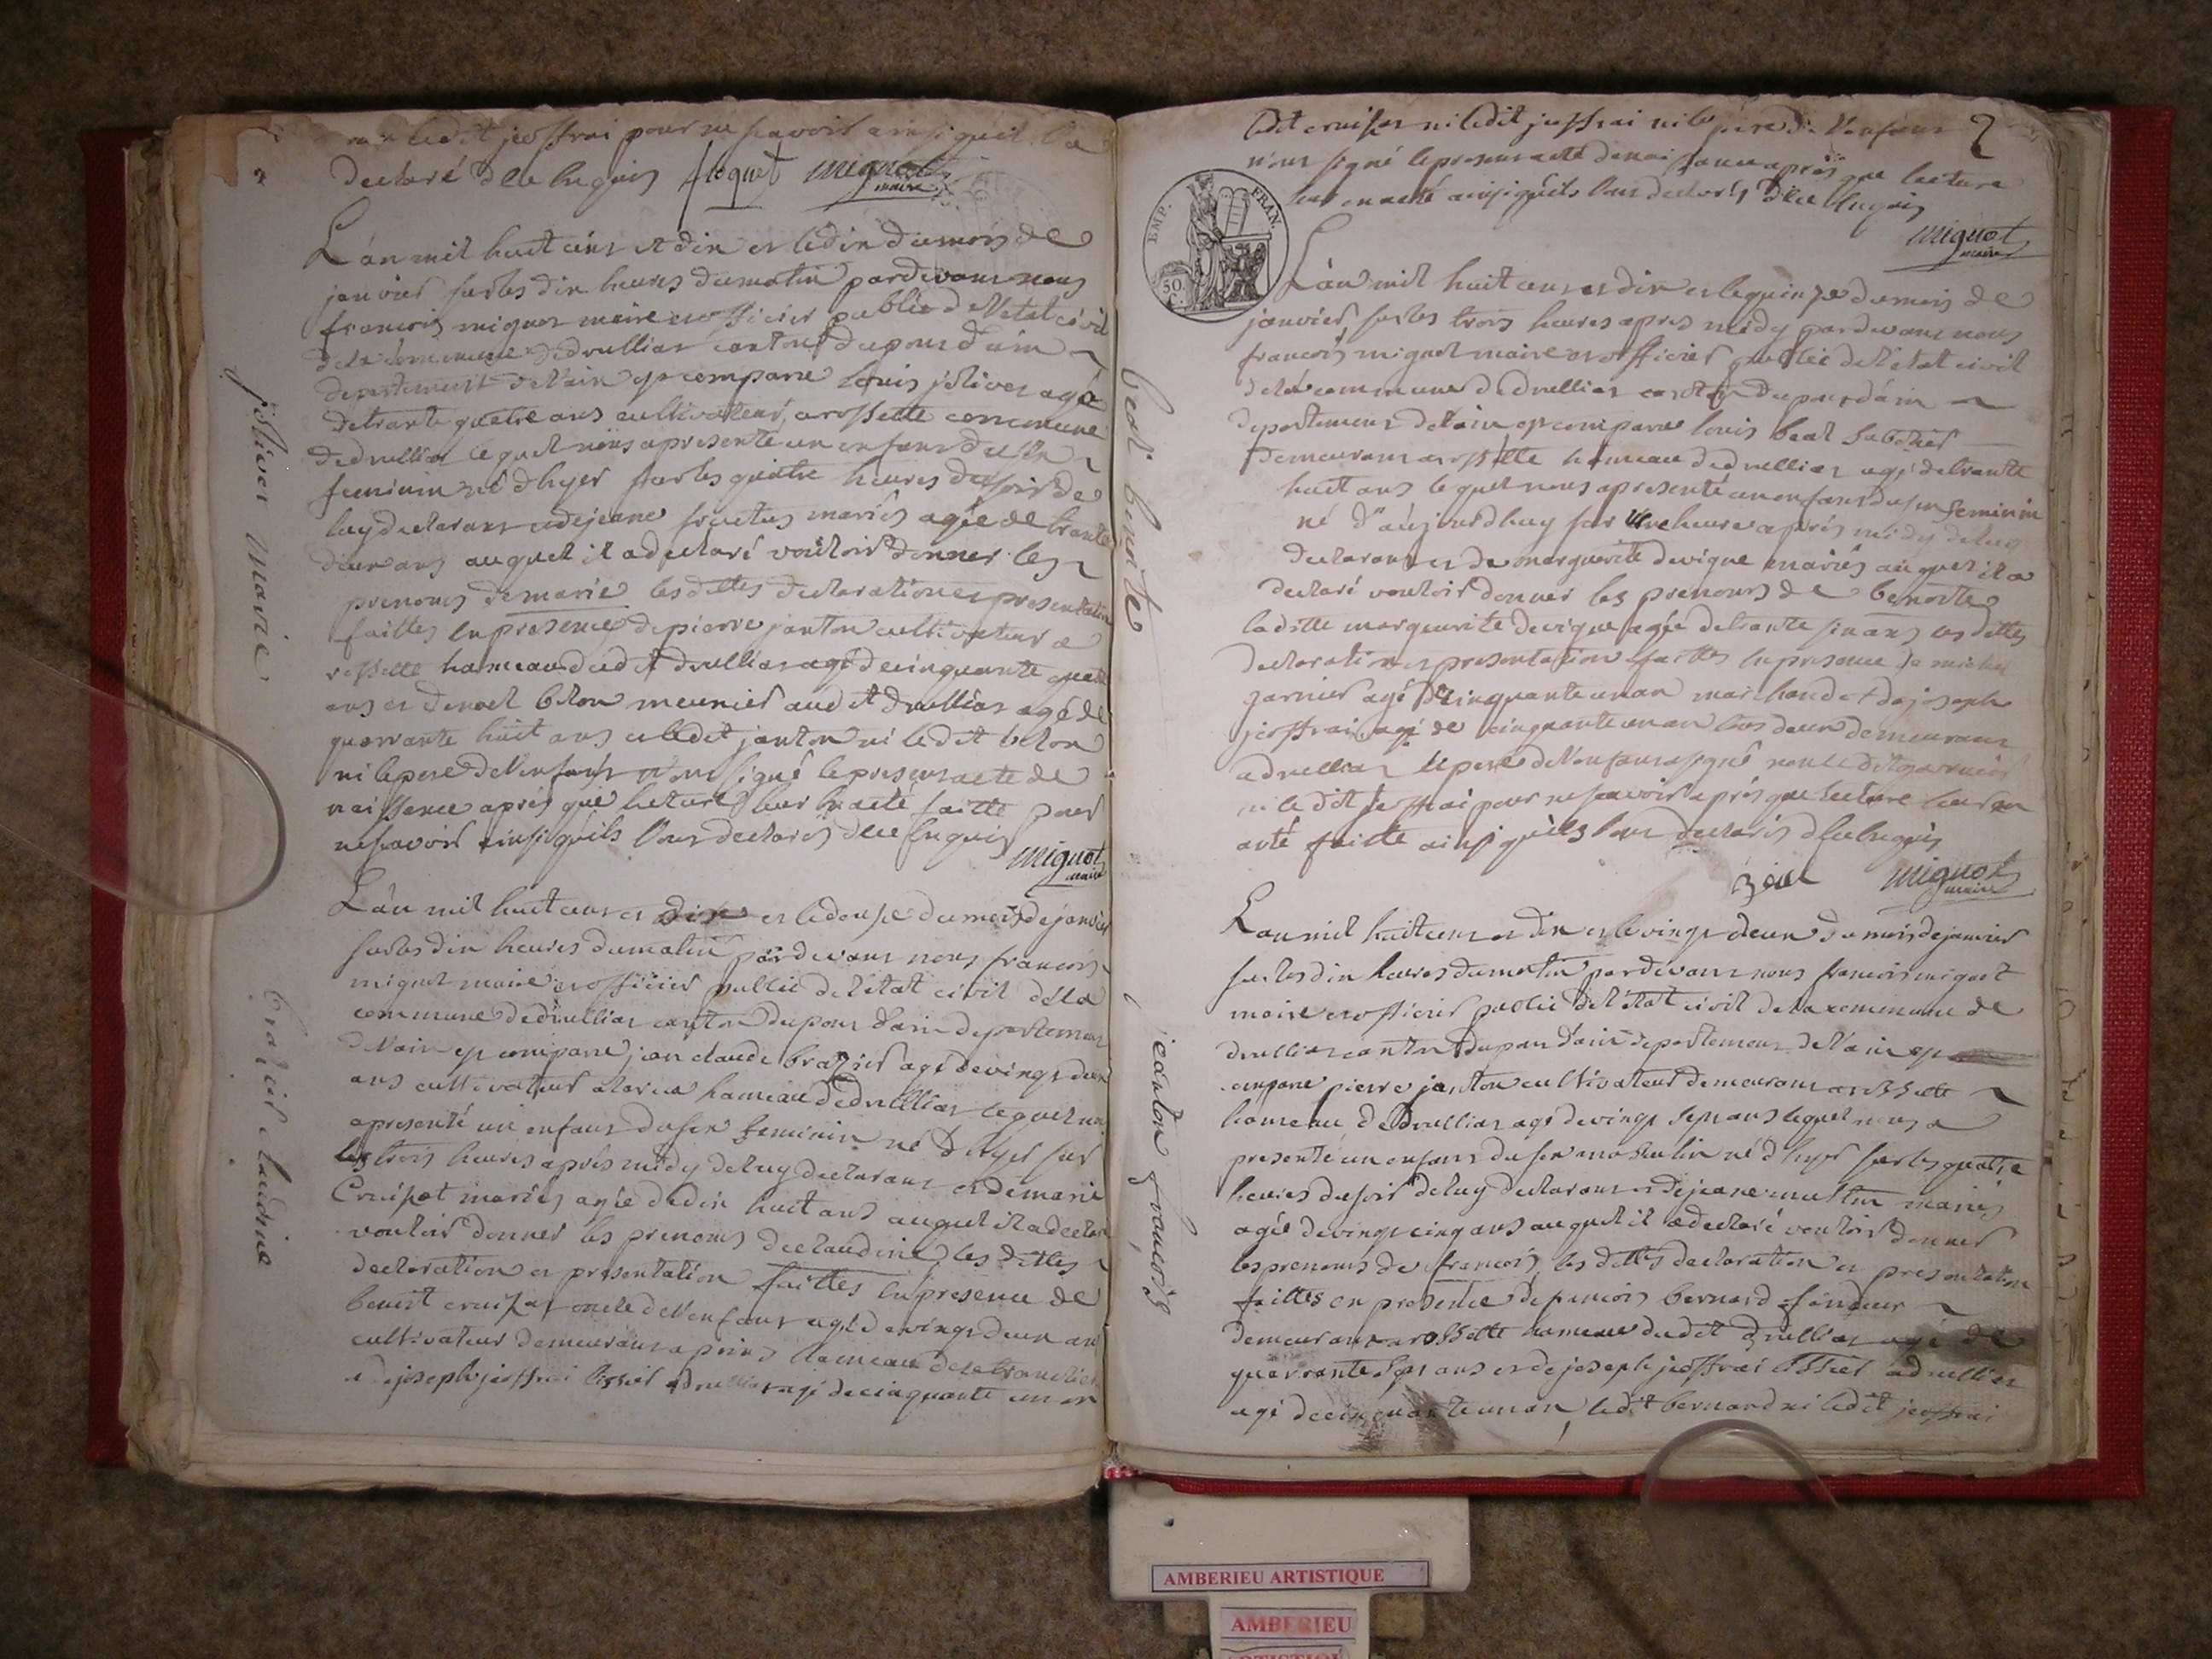 ledit jeoffrai pour ne scavoir ainsi quil l'a
declaré d'ce enquis floquet mignot
maire
L'an mil huit cens et dix es le dix du mois de
janvier sur les dix heures du matin pardevant nous
francois mignot maire es officier public de l'etat civil
de la commune de druillias canton du pont d'ain
departement de l'ain est comparu louis jolivet agé
de trante quatre ans cultivateur a rossette commune
de druillia lequel nous a presenté un enfans du sex
feminin né d'hyer sur les quatre heures du soir de
luy declarans et de jeane fructus mariés agée de trante
deux ans auquel il a declaré vouloir donner les
prenoms de marie les dittes declaration es presentation
faittes en presence de pierre janton cultivateur a
rossette hameau dudit druillias agé de cinquante quatre
ans es benoit belon meunier audit druillias agé de
quarrante huit ans es ledit janton ni ledit belon
ni le pere de l'enfans n'ont signé le presens acte de
naissance après que lecture leur en a eté faitte pour
ne scavoir ainsi quils l'ons declarés d'ce enquis
mignot
maire
L'an mil huit cens es dix es le douse du mois de janvier
sur les dix heures du matin pardevans nous francois
mignot maire es officier public de l'etat civil de la
commune de druillias canton du pons d'ain departemens
de l'ain est comparu jean claude brazier agé de vingt deux
ans cultivateur a hameau de druillias lequel nous
a presenté un enfans du sex feminin né d'hyer sur
les trois heures après midy de luy declarans es de marie
Cruisat mariés agée de dix huit ans auquel il a declaré
vouloir donner les prenoms de claudine les dittes
declaration es presentation faittes en presence de
benoit cruisat oncle de l'enfans agé de vingt deux ans
cultivateur demeurans a hameau de
es de joseph jeoffrai tissier a druillias agé de cinquante un an
jolivet marie
brazier claudine
ledit cruisat ni ledit jeoffrai ni le pere de l'enfans 2
n'ons signé le presens acte de naissance après que lecture
leur en a eté ainsi quils l'ons declarés d'ce enquis
mignot
maire
EMP. FRAN.
50 C.
L'an mil huit cens es dix es le quinze du mois de
janvier sur les trois heures apres midy pardevans nous
francois mignot maire es officier public de l'etat civil
de la commune de druillias canton du pons d'ain
departemens de l'ain est comparu louis beal sabotier
demeurans a rossette hameau de druillias agé de trante
huit ans lequel nous a presenté un enfans du sex feminin
né d'aujourdhuy sur une heure après midy de luy
declarans es de marguerite devigne mariés auquel il a
declaré vouloir donner les prenoms de benoite
laditte marguerite devigne agée de trante six ans les dittes
declaration es presentation faittes en presence de michel
garnier agé de cinquante un an marchand et de joseph
jeoffrai agé de cinquante un an tous deux demeurans
a druillias le pere de l'enfans a signé non ledit garnier
ni ledit jeoffrai pour ne scavoir après que lecture leur en
a eté faitte ainsi quils l'ons declarés d'ce enquis
béal mignot
maire
L'an mil huit cens es dix es le vingt deux du mois de janvier
sur les dix heures du matin pardevans nous francois mignot
maire es officier public de l'etat civil de la commune de
druillias canton du pons d'ain departemens de l'ain est
comparu pierre janton cultivateur demeurans a rossette
hameau de druillias agé de vingt sept ans lequel nous a
presenté un enfans du sex masculin né d'hyer sur les quatre
heures du soir de luy declarans es de jeane mariés
agée de vingt cinq ans auquel il a declaré vouloir donner
les prenoms de francois les dittes declaration es presentation
faittes en presence de francois bernard
demeurans a rossette hameau dudit druillias agé de
quarrante sept ans es de joseph jeoffrai tissier a druillias
agé de cinquante un an ledit bernard ni ledit jeoffrai
beal benoite
jeanton francois
AMBERIEU ARTISTIQUE
AMBERIEU
ARTISTIQUE